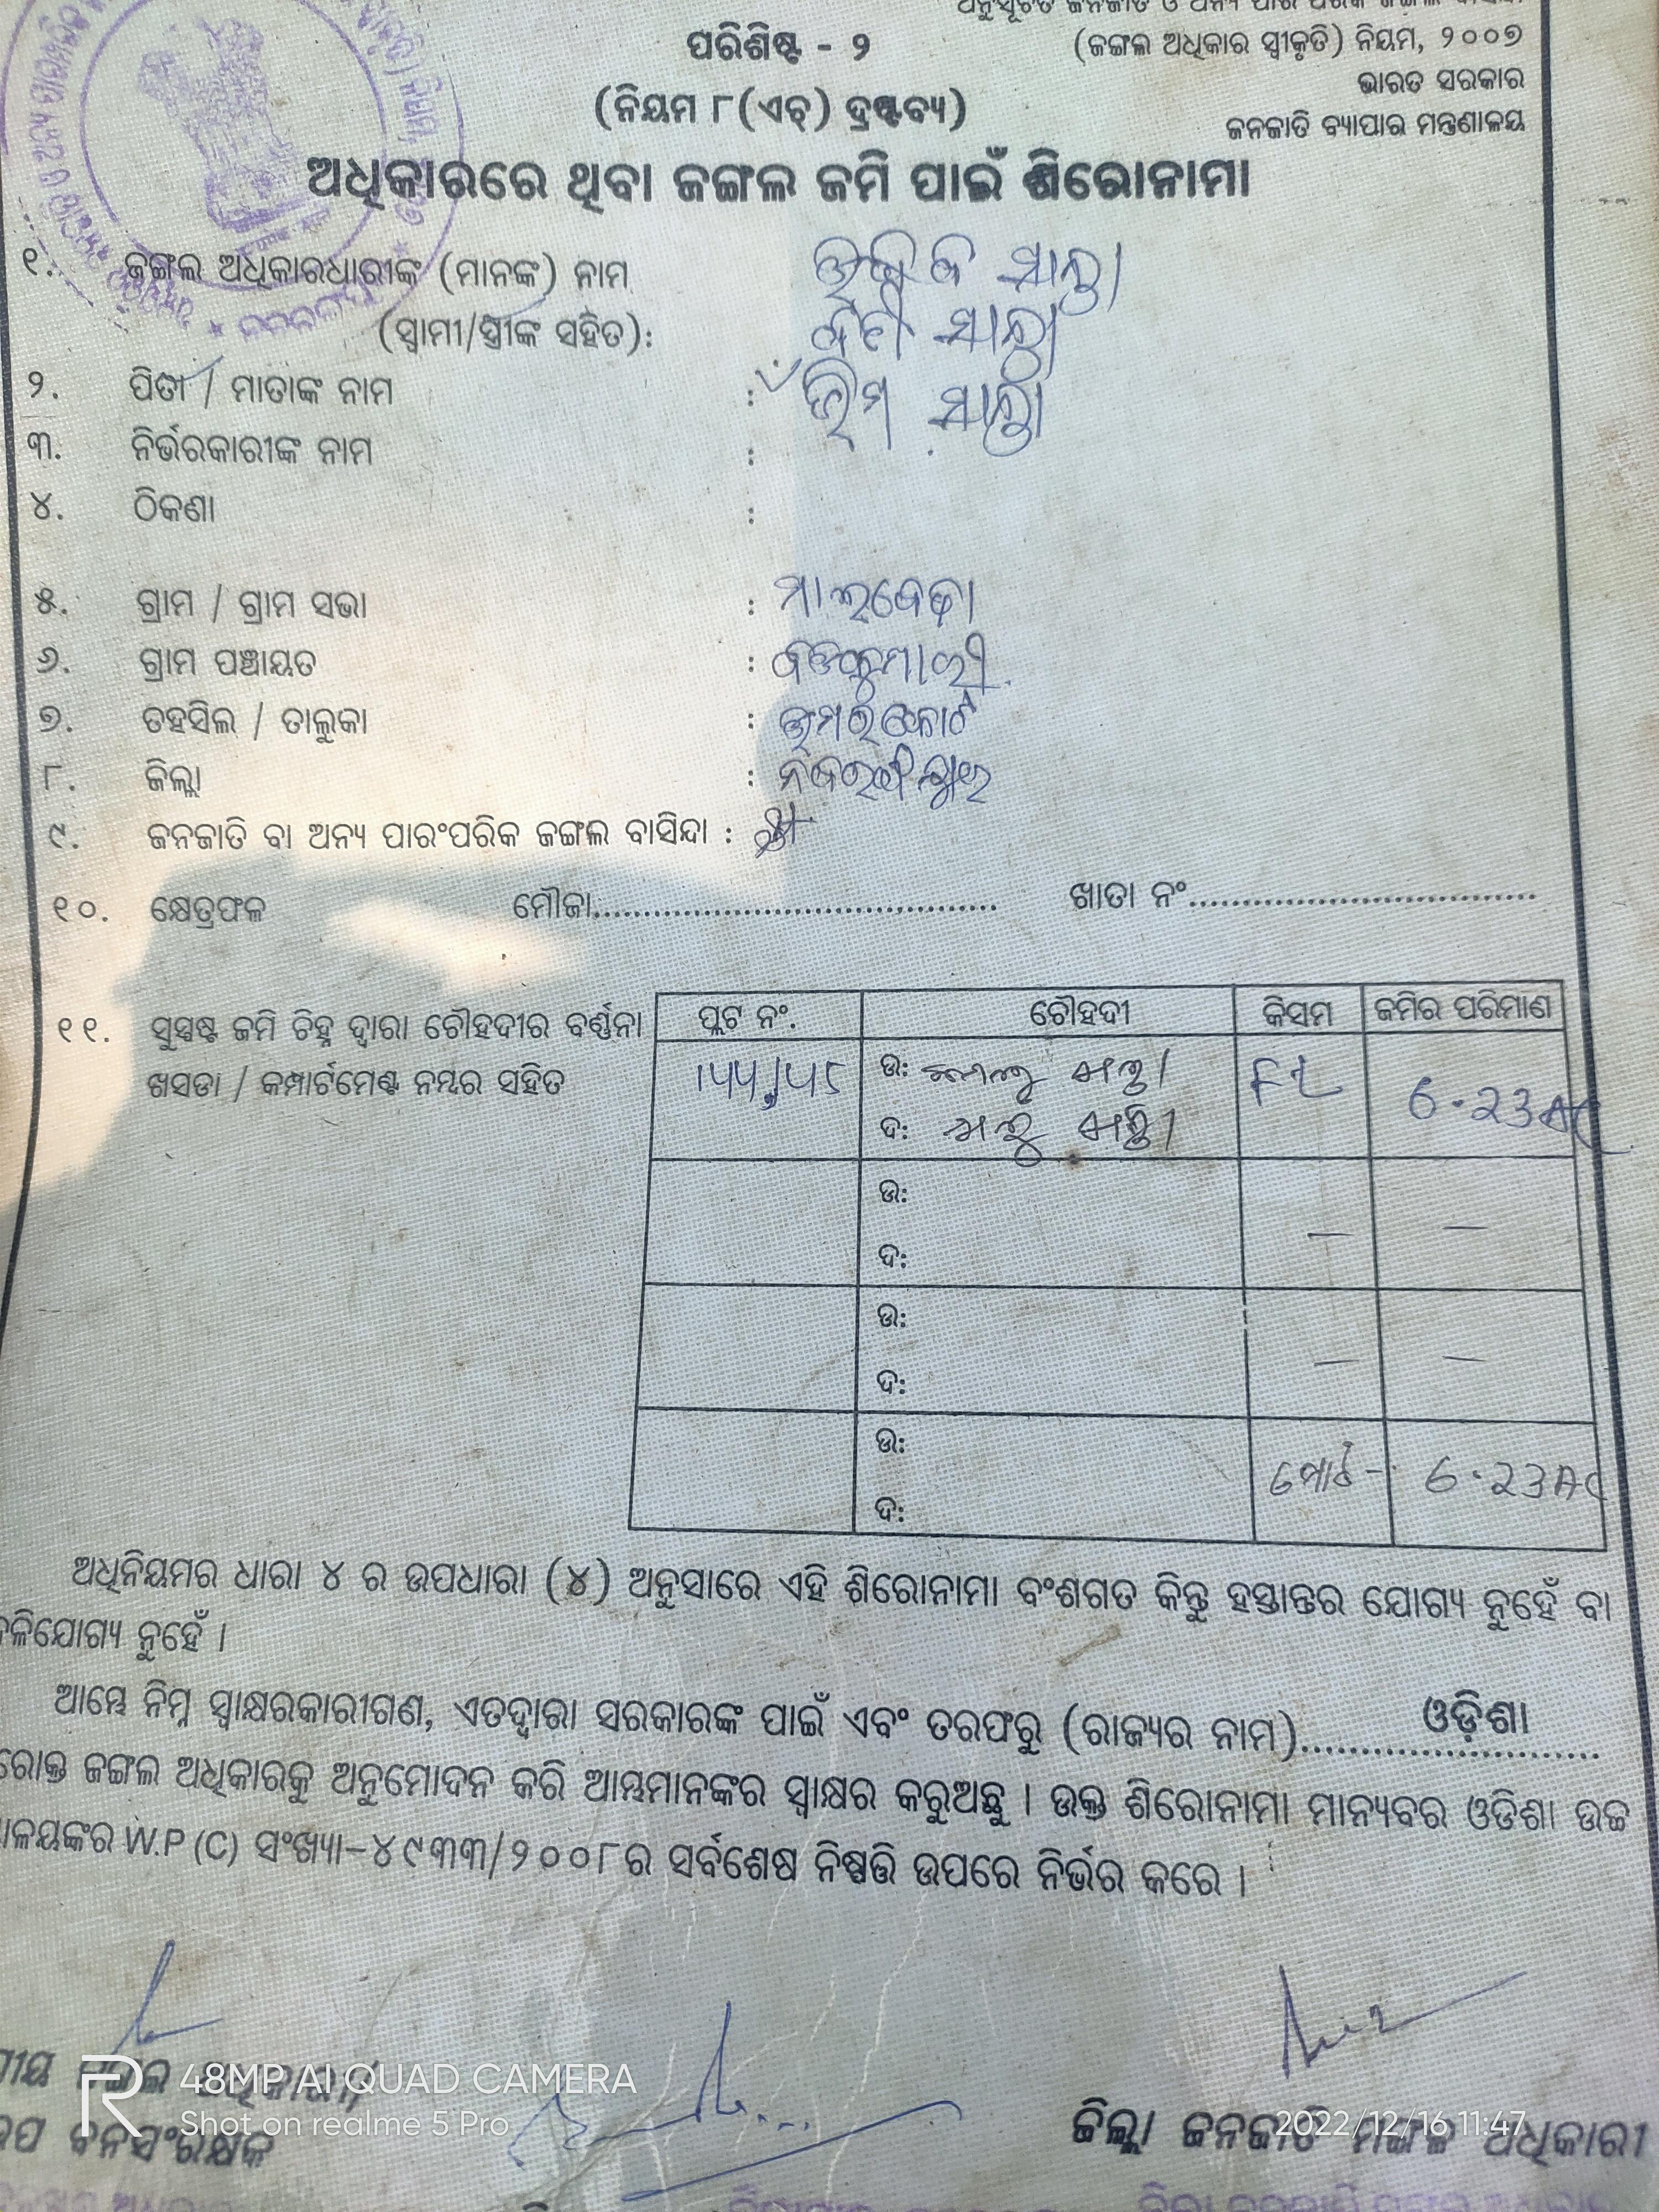 ପରିଶିଷ୍ଟ - ୨
(ଜଙ୍ଗଲ ଅଧିକାର ସ୍ୱୀକୃତି) ନିୟମ, ୨୦୦୭
(ନିୟମ ୮(ଏଚ୍) ଦ୍ରଷ୍ଟବ୍ୟ)
ଭାରତ ସରକାର
ଜନଜାତି ବ୍ୟାପାର ମନ୍ତ୍ରଣାଳୟ
ଅଧିକାରରେ ଥିବା ଜଙ୍ଗଲ ଜମି ପାଇଁ ଶିରୋନାମା
୧. ଜଙ୍ଗଲ ଅଧିକାରଧାରୀଙ୍କ (ମାନଙ୍କ) ନାମ
(ସ୍ୱାମୀ/ସ୍ତ୍ରୀଙ୍କ ସହିତ):
୨. ପିତା / ମାତାଙ୍କ ନାମ :
୩. ନିର୍ଭରକାରୀଙ୍କ ନାମ :
୪. ଠିକଣା :
୫. ଗ୍ରାମ / ଗ୍ରାମ ସଭା : ମାଲବେଢା
୬. ଗ୍ରାମ ପଞ୍ଚାୟତ : ବଡକୁମାରୀ
୭. ତହସିଲ / ତାଲୁକା : ଉମରକୋଟ
୮. ଜିଲ୍ଲା : ନବରଙ୍ଗପୁର
୯. ଜନଜାତି ବା ଅନ୍ୟ ପାରଂପରିକ ଜଙ୍ଗଲ ବାସିନ୍ଦା :
୧୦. କ୍ଷେତ୍ରଫଳ ମୌଜା........ ଖାତା ନଂ........
୧୧. ସୁସ୍ପଷ୍ଟ ଜମି ଚିହ୍ନ ଦ୍ୱାରା ଚୌହଦୀର ବର୍ଣ୍ଣନା
ଖସଡା / କମ୍ପାର୍ଟମେଣ୍ଟ ନମ୍ବର ସହିତ
ପ୍ଲଟ ନଂ. ଚୌହଦୀ କିସମ ଜମିର ପରିମାଣ
ଉ: 6.23 AC
ଦ:
ଉ: — —
ଦ:
ଉ: — —
ଦ:
ଉ: ମୋଟ - 6.23 AC
ଦ:
ଅଧିନିୟମର ଧାରା ୪ ର ଉପଧାରା (୪) ଅନୁସାରେ ଏହି ଶିରୋନାମା ବଂଶଗତ କିନ୍ତୁ ହସ୍ତାନ୍ତର ଯୋଗ୍ୟ ନୁହେଁ ବା
ଳିଯୋଗ୍ୟ ନୁହେଁ ।
ଆମ୍ଭେ ନିମ୍ନ ସ୍ୱାକ୍ଷରକାରୀଗଣ, ଏତଦ୍ୱାରା ସରକାରଙ୍କ ପାଇଁ ଏବଂ ତରଫରୁ (ରାଜ୍ୟର ନାମ)........ଓଡ଼ିଶା........
ରୋକ୍ତ ଜଙ୍ଗଲ ଅଧିକାରକୁ ଅନୁମୋଦନ କରି ଆମ୍ଭମାନଙ୍କର ସ୍ୱାକ୍ଷର କରୁଅଛୁ । ଉକ୍ତ ଶିରୋନାମା ମାନ୍ୟବର ଓଡିଶା ଉଚ୍ଚ
ାଳୟଙ୍କର W.P (C) ସଂଖ୍ୟା-୪୯୩୩/୨୦୦୮ର ସର୍ବଶେଷ ନିଷ୍ପତ୍ତି ଉପରେ ନିର୍ଭର କରେ ।
48MP AI QUAD CAMERA
Shot on realme 5 Pro
ବନସଂରକ୍ଷକ
ଜିଲ୍ଲା ଜନଜାତି ମଙ୍ଗଳ ଅଧିକାରୀ
2022/12/16 11:47